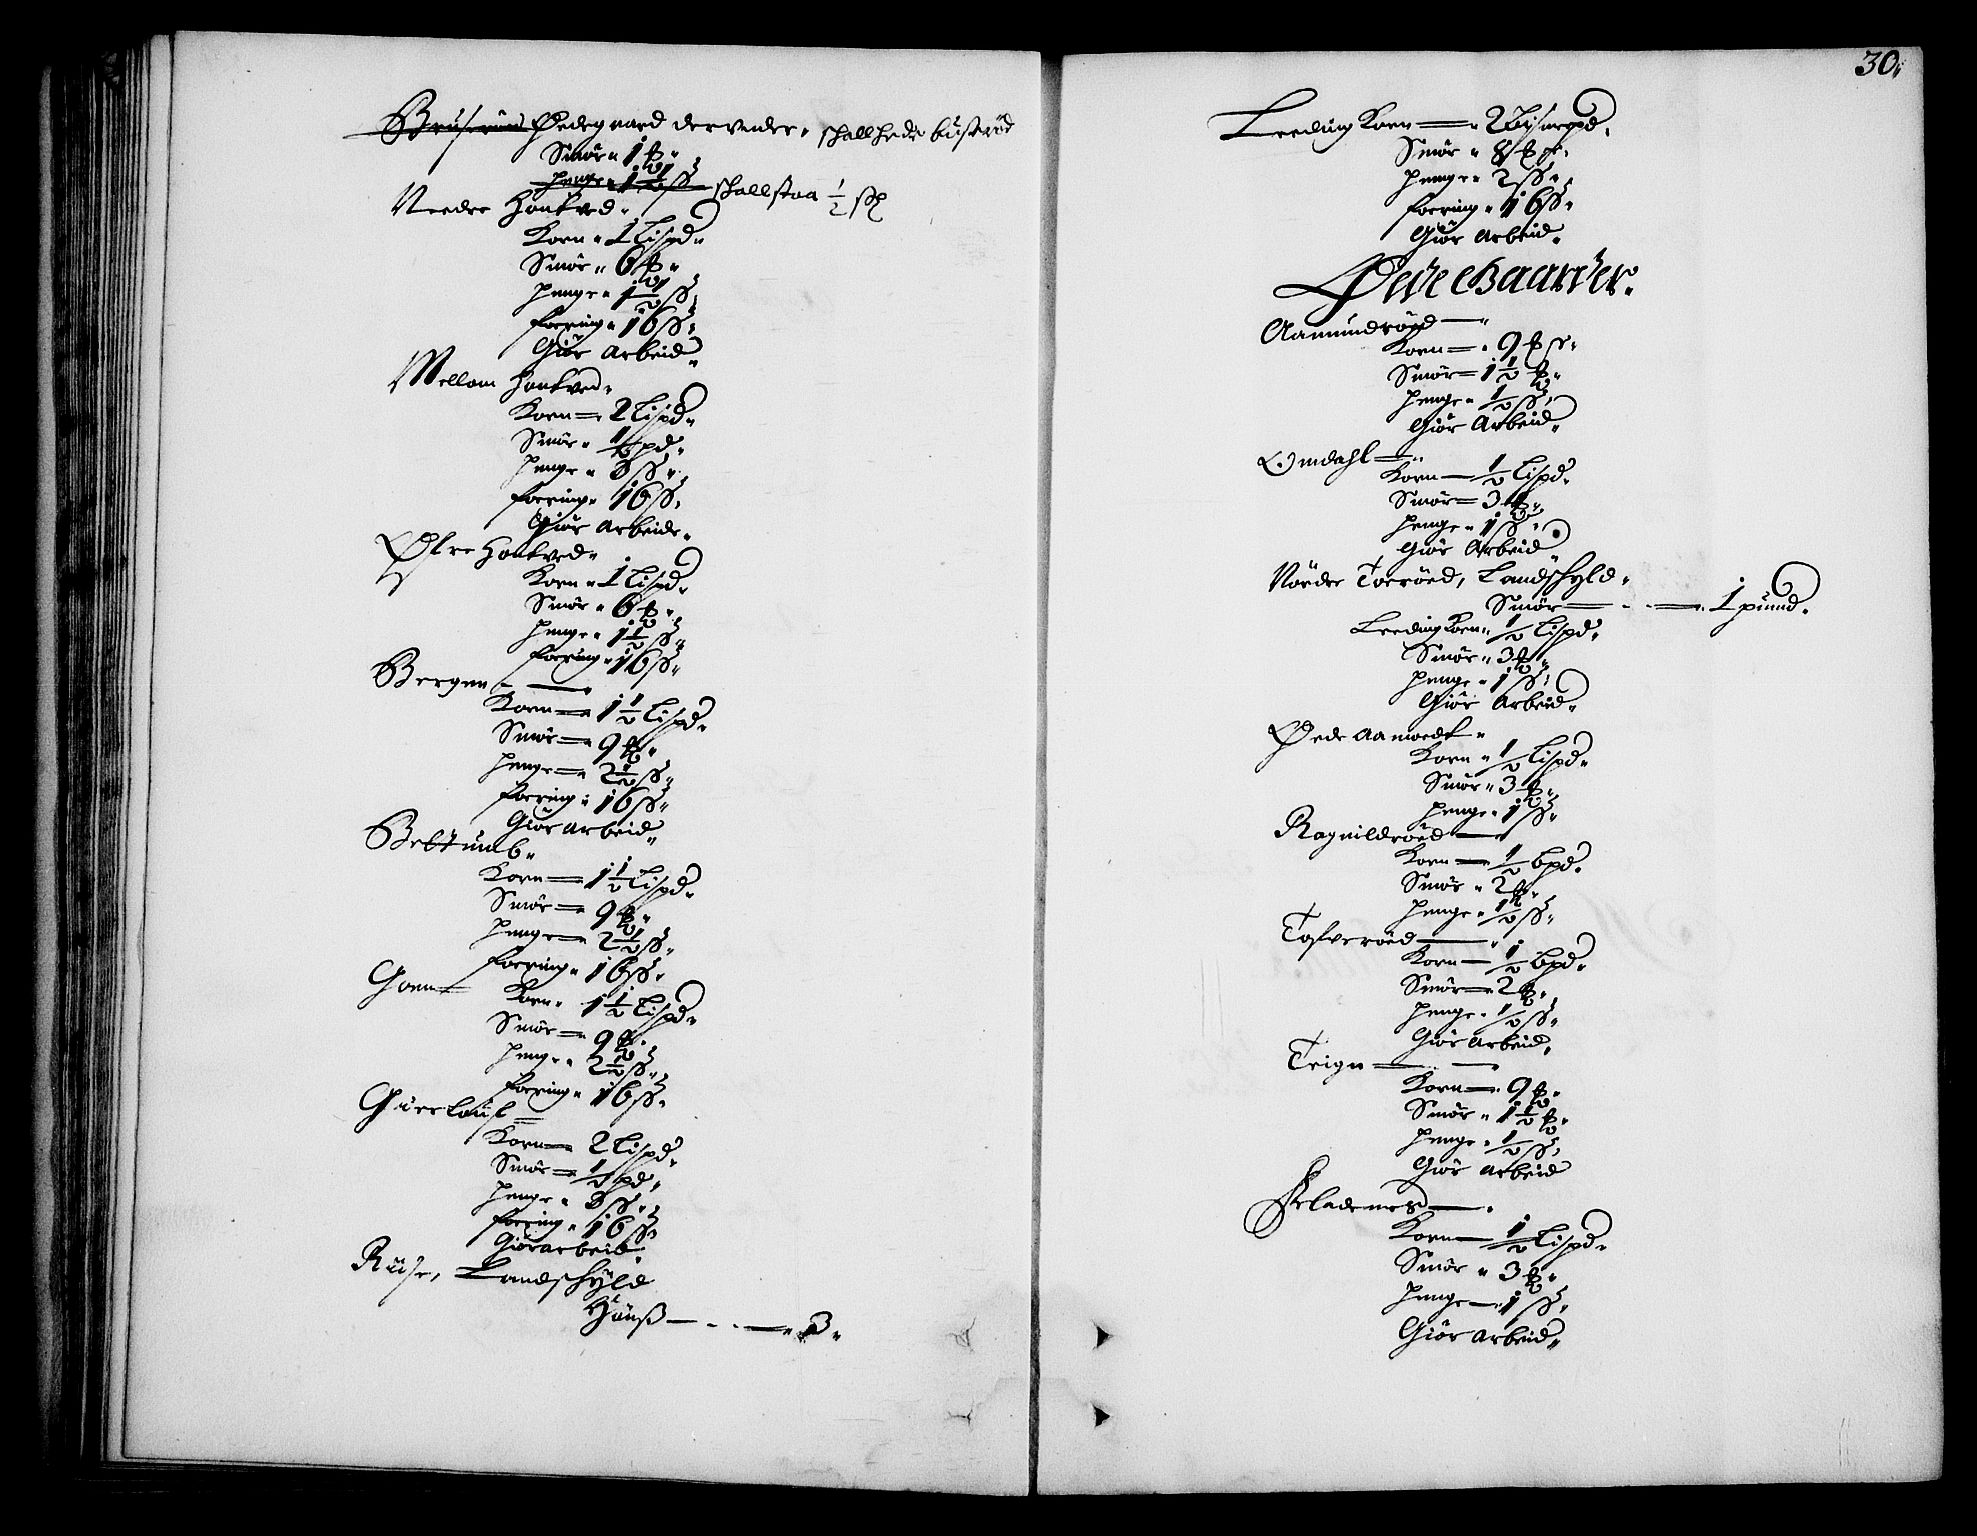 Bruserūd Ødegaard derunder, schall hede busterød
Smør 1 ℔
Penge 1½ ß schall staa ½ ß
Needre Hontved
Korn 1 Lispd
Smør 6 ℔
Penge 1½ ß
foering 16 ß
Giör Arbeid
Mellom Hontved
Korn 2 Lispd
Smør ½ pd
Penge 3 ß
foering 16 ß
Giör Arbeide
Øfre Hontved
Korn 1 Lispd
Smør 6 ℔
Penge 1½ ß
foering 16 ß
Bergan
Korn 1½ Lispd
Smør 9 ℔
Penge 2½ ß
foering 16 ß
Giör arbeid
Beltumb
Korn 1½ Lispd
Smør 9 ℔
Penge 2½ ß
foering 16 ß
Goen
Korn 1½ Lispd
Smør 9 ℔
Penge 2½ ß
foering 16 ß
Korn 2 Lispd
Smør ½ pd
Penge 3 ß
foering 16 ß
Giör arbeid
Landschyld
3
30
Leeding Korn 2 Bismerpd
Smør 8 ℔
Penge 2 ß
foering 16 ß
Giör Arbeid
Øede Gaarder
Aamundröed
Korn 9 ℔
Smør 1½ ℔
Penge ½ ß
Giör Arbeid
Omdahl
Korn ½ Lispd
Smør 3 ℔
Penge 1 ß
Giör Arbeid
Nördre Toeröed, Landschyld
Smör 1 pund
Leeding Korn ½ Lispd
Smør 3 ℔
Penge 1 ß
Giör Arbeid
Øede Aamoedt
Korn ½ Lispd
Smør 3 ℔
Penge 1 ß
Ragnildröed
Korn ½ bpd
Smør 2 ℔
Penge ½ ß
Tofveröed
Korn ½ bpd
Smør 2 ℔
Penge ½ ß
Giör Arbeid
Teign
Korn 9 ℔
Smør 1½ ℔
Penge ½ ß
Giör Arbeid
Korn ½ Lispd
Smør 3 ℔
Penge 1 ß
Giör Arbeid